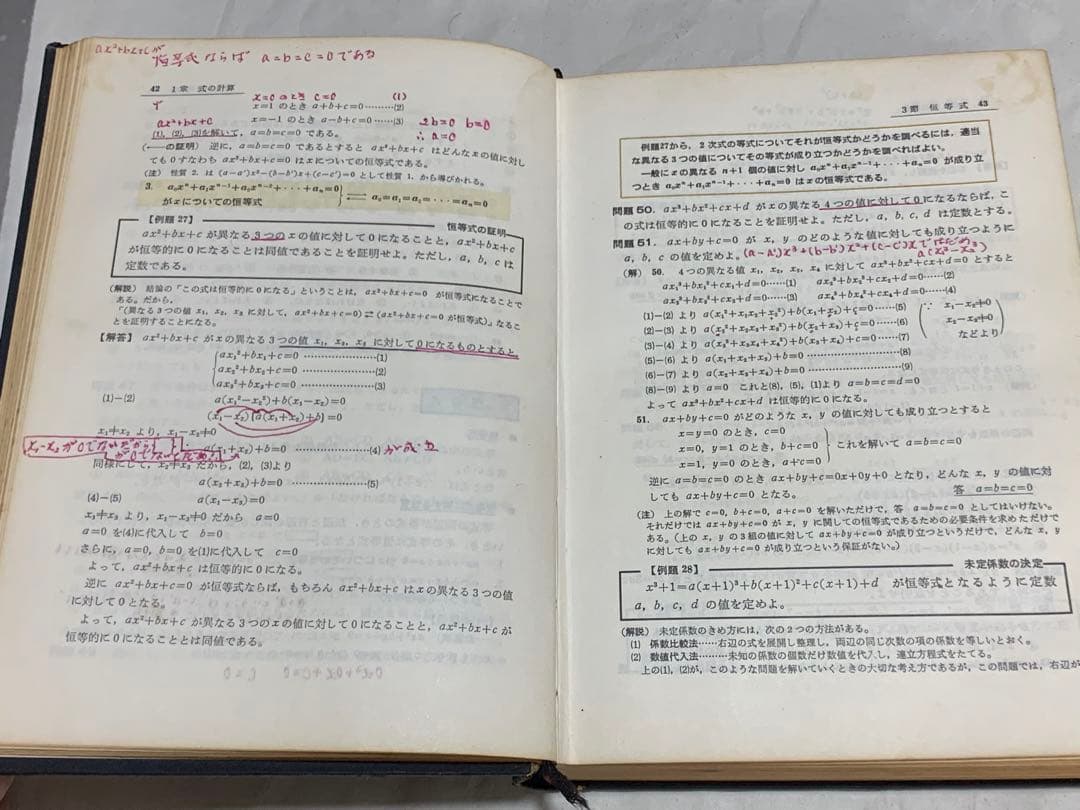 ax²+bx+cが
恒等式ならば a=b=c=0である
42 1章 式の計算
x=0のとき c=0 (1)
x=1 のとき a+b+c=0………(2)
ax²+bx+c
x=−1 のとき a−b+c=0………(3) 2b=0 b=0
(1), (2), (3)を解いて, a=b=c=0 である。 ∴a=0
(←の証明) 逆に, a=b=c=0 であるとすると ax²+bx+c はどんな x の値に対し
ても0すなわち ax²+bx+c=0 は x についての恒等式である。
(注) 性質 2. は (a−a')x²−(b−b')x+(c−c')=0 として性質 1. から導びかれる。
3. a₀xⁿ+a₁xⁿ⁻¹+a₂xⁿ⁻²+・・・・+aₙ=0
がxについての恒等式 ⇄ a₀=a₁=a₂=・・・・=aₙ=0
【例題 27】 恒等式の証明
ax²+bx+c が異なる3つの x の値に対して0になることと, ax²+bx+c
が恒等的に0になることは同値であることを証明せよ。ただし, a, b, c は
定数である。
(解説) 結論の「この式は恒等的に0になる」ということは, ax²+bx+c=0 が恒等式になることで
ある。だから,
「(異なる3つの値 x₁, x₂, x₃ に対して, ax²+bx+c=0) ⇄ (ax²+bx+c=0 が恒等式)」なるこ
とを証明することになる。
【解答】 ax²+bx+c が x の異なる3つの値 x₁, x₂, x₃ に対して0になるものとすると,
ax₁²+bx₁+c=0 ………………(1)
ax₂²+bx₂+c=0 ………………(2)
ax₃²+bx₃+c=0 ………………(3)
(1)−(2) a(x₁²−x₂²)+b(x₁−x₂)=0
(x₁−x₂){a(x₁+x₂)+b}=0
x₁≠x₂ より, x₁−x₂≠0
x₁−x₂が0でないだから
a(x₁+x₂)+b=0 ………………(4) が成立
同様にして, x₂≠x₃ だから, (2), (3)より
a(x₂+x₃)+b=0 ………………(5)
(4)−(5) a(x₁−x₃)=0
x₁≠x₃ より, x₁−x₃≠0 だから a=0
a=0 を(4)に代入して b=0
さらに, a=0, b=0 を(1)に代入して c=0
よって, ax²+bx+c は恒等的に0になる。
逆に ax²+bx+c=0 が恒等式ならば, もちろん ax²+bx+c は x の異なる3つの値
に対して0となる。
よって, ax²+bx+c が異なる3つの x の値に対して0になることと, ax²+bx+c が
恒等的に0になることとは同値である。
3節 恒等式 43
例題27から, 2次式の等式についてそれが恒等式かどうかを調べるには, 適当
な異なる3つの値についてその等式が成り立つかどうかを調べればよい。
一般に x の異なる n+1 個の値に対し a₀xⁿ+a₁xⁿ⁻¹+・・・・+aₙ=0 が成り立
つとき a₀xⁿ+a₁xⁿ⁻¹+・・・・+aₙ=0 は x の恒等式である。
問題 50. ax³+bx²+cx+d が x の異なる4つの値に対して0になるならば, こ
の式は恒等的に0になることを証明せよ。ただし, a, b, c, d は定数とする。
問題 51. ax+by+c=0 が x, y のどのような値に対しても成り立つように
a, b, c の値を定めよ。
(解) 50. 4つの異なる値 x₁, x₂, x₃, x₄ に対して ax³+bx²+cx+d=0 とすると
ax₁³+bx₁²+cx₁+d=0……(1) ax₂³+bx₂²+cx₂+d=0……(2)
ax₃³+bx₃²+cx₃+d=0……(3) ax₄³+bx₄²+cx₄+d=0……(4)
(1)−(2) より a(x₁²+x₁x₂+x₂²)+b(x₁+x₂)+c=0……(5)
(2)−(3) より a(x₂²+x₂x₃+x₃²)+b(x₂+x₃)+c=0……(6)
(3)−(4) より a(x₃²+x₃x₄+x₄²)+b(x₃+x₄)+c=0……(7)
(∵ x₁−x₂≠0
x₂−x₃≠0
などより)
(5)−(6) より a(x₁+x₂+x₃)+b=0 ………………(8)
(6)−(7) より a(x₂+x₃+x₄)+b=0 ………………(9)
(8)−(9) より a=0 これと(8), (5), (1)より a=b=c=d=0
よって ax³+bx²+cx+d は恒等的に0になる。
51. ax+by+c=0 がどのような x, y の値に対しても成り立つとすると
x=y=0 のとき, c=0
x=0, y=1 のとき, b+c=0 これを解いて a=b=c=0
x=1, y=0 のとき, a+c=0
逆に a=b=c=0 のとき ax+by+c=0x+0y+0 となり, どんな x, y の値に対
しても ax+by+c=0 となる。 答 a=b=c=0
(注) 上の解で c=0, b+c=0, a+c=0 を解いただけで, 答 a=b=c=0 としてはいけない。
それだけでは ax+by+c=0 が x, y に関しての恒等式であるための必要条件を求めただけで
ある。(上の x, y の3組の値に対して ax+by+c=0 が成り立つというだけで, どんな x, y
に対しても ax+by+c=0 が成り立つという保証がない。)
【例題 28】 未定係数の決定
x³+1=a(x+1)³+b(x+1)²+c(x+1)+d が恒等式となるように定数
a, b, c, d の値を定めよ。
(解説) 未定係数のきめ方には, 次の2つの方法がある。
(1) 係数比較法……右辺の式を展開し整理し, 両辺の同じ次数の項の係数を等しいとおく。
(2) 数値代入法………未知の係数の個数だけ数値を代入し, 連立方程式をたてる。
上の(1), (2)が, このような問題を解いていくときの大切な考え方であるが, この問題では, 右辺が